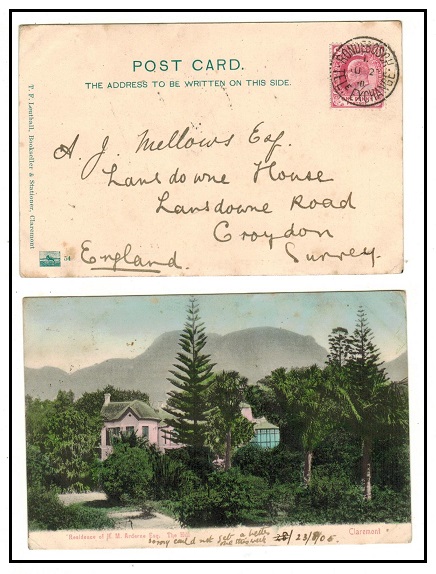 POST CARD.
THE ADDRESS TO BE WRITTEN ON THIS SIDE.
RONDEBOSCH
TELE EXCHANGE
A. J. Mellows Esq.
Lansdowne House
Lansdowne Road
Croydon
England. Surrey.
T. F. Louthall, Bookseller & Stationer, Claremont
04
Residence of F. M. Esq. The Hill Claremont
sorry could not get a better one this week 28/ 23/8/05.